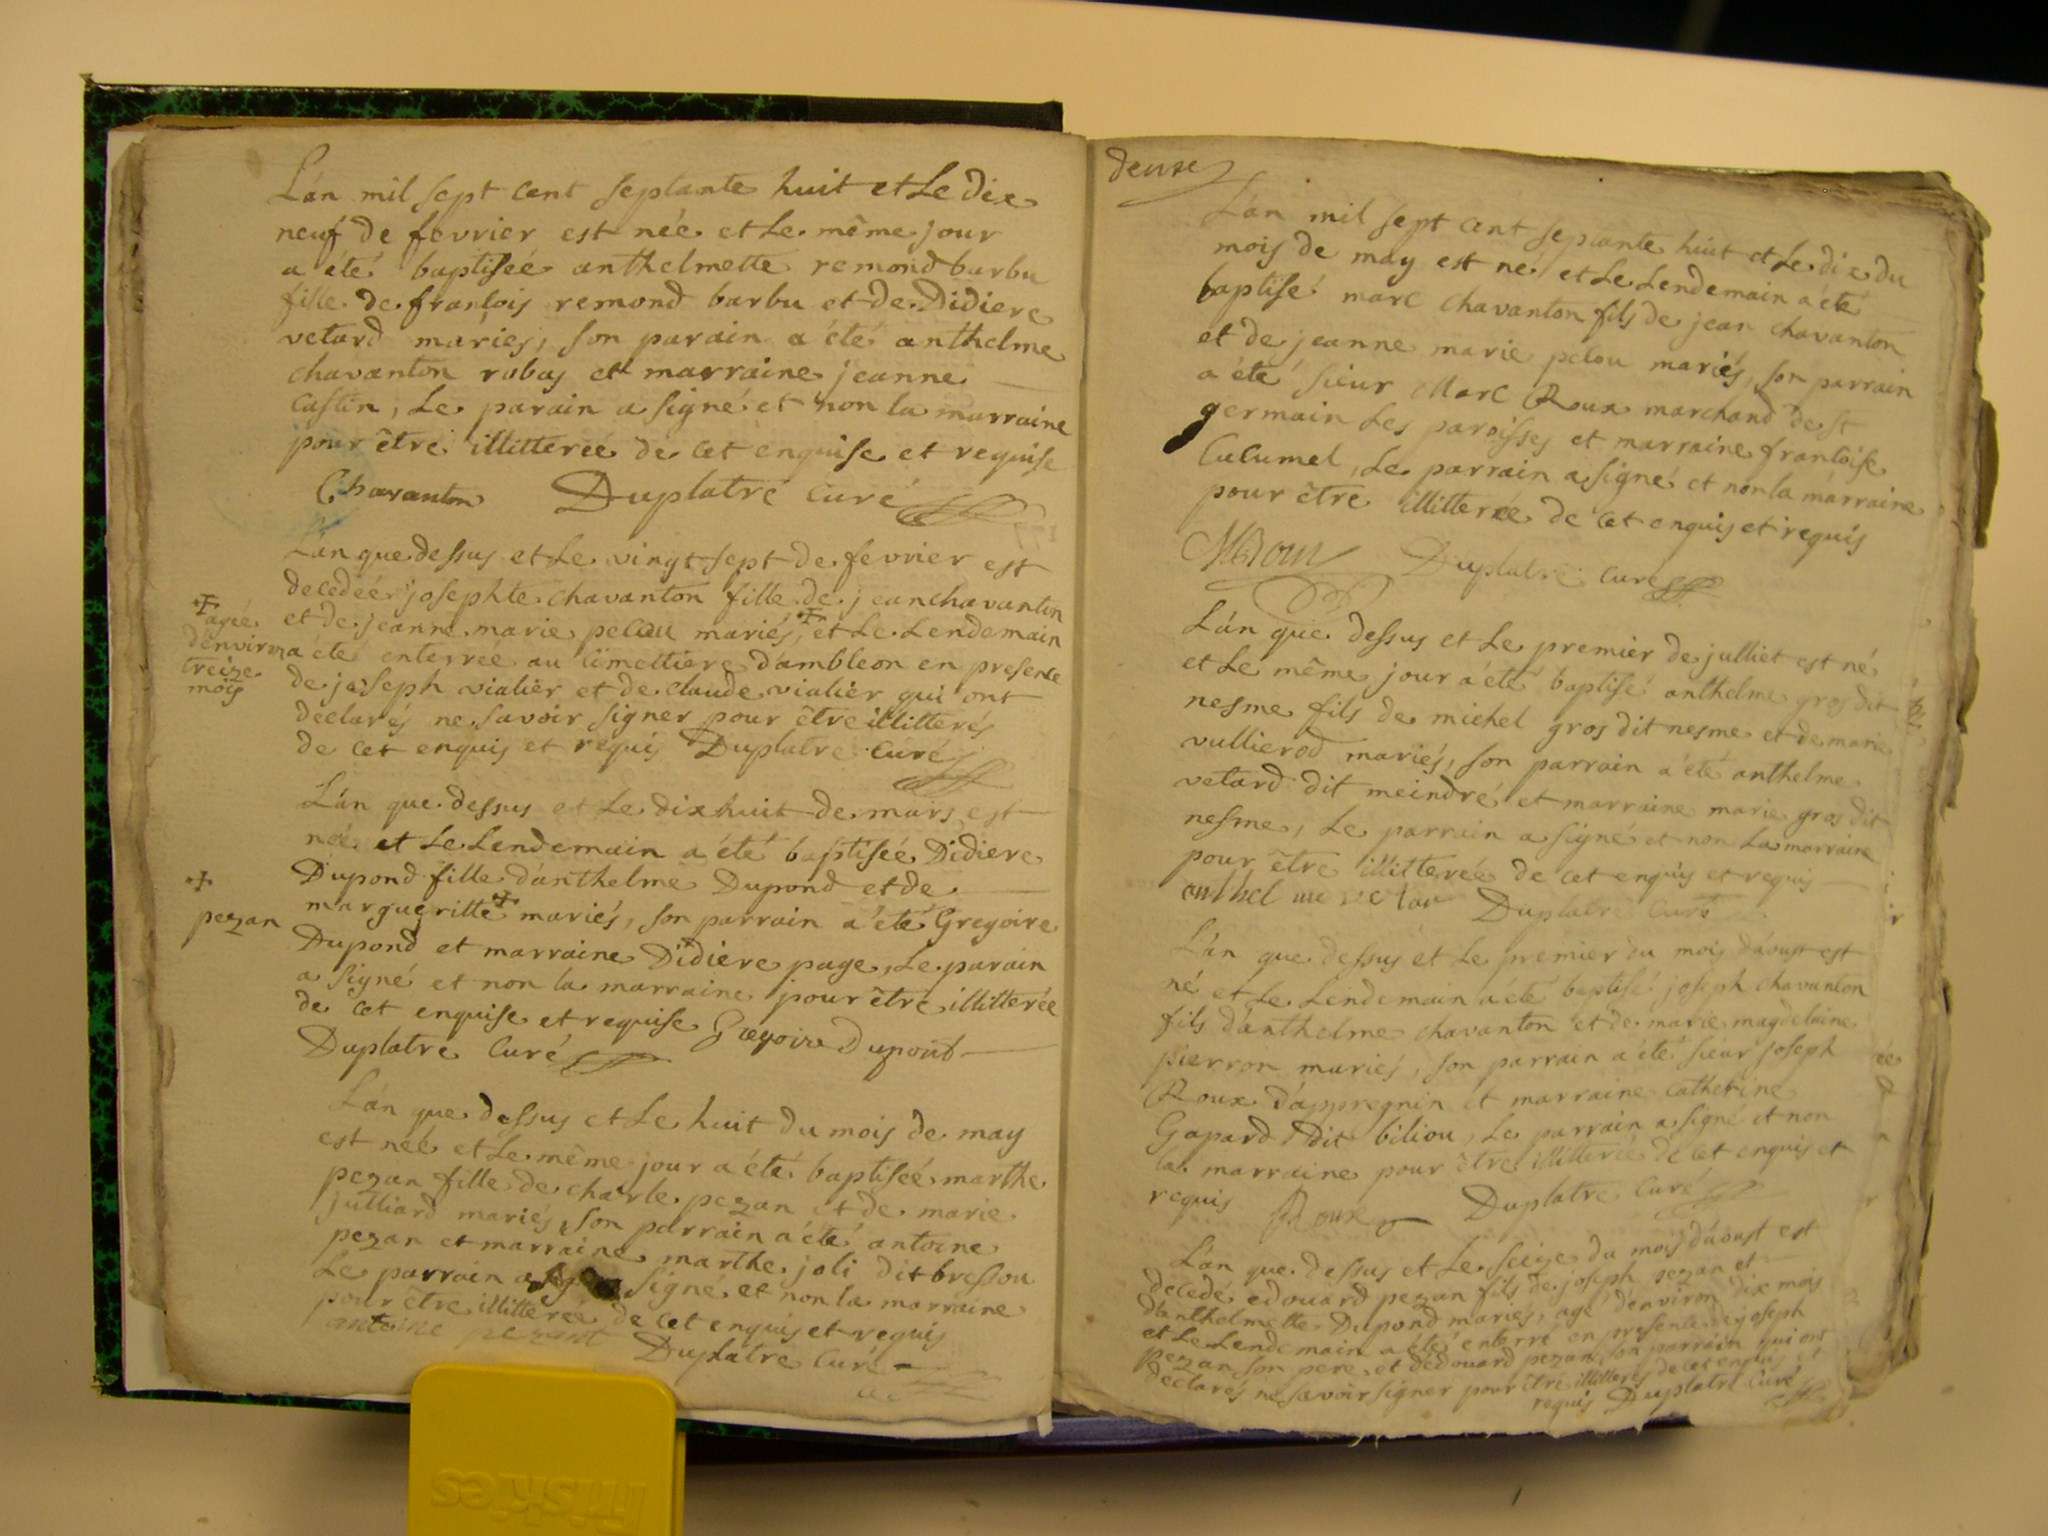 L'an mil sept cent septante huit et le dix
neuf de fevrier est née et le même jour
a été baptiseé anthelmette remond barbu
fille de francois remond barbu et de Didiere
vetard mariés, son parain a été anthelme
chavanton rubas et marraine jeanne
Castin, le parain a signé et non la marraine
pour être illitereé de cet enquise et requise
Chavanton Duplatre Curé
L'an que dessus et le vingt sept de fevrier est
decedeé josephte chavanton fille de jean chavanton
et de jeanne marie pelou mariés, et le lendemain
agée
d'environ
treize
mois
a été enterreé au cimettiere d'ambleon en presence
de joseph vialier et de claude vialier qui ont
declarés ne savoir signer pour être illitterés
de cet enquis et requis Duplatre Curé
L'an que dessus et le dix huit de mars est
née et le lendemain a été baptiseé Didiere
Dupond fille d'anthelme Dupond et de
margueritte mariés, son parrain a été Gregoire
pezan
Dupond et marraine Didiere page, le parain
a signé et non la marraine pour être illitterée
de cet enquise et requise Gregoire Dupont
Duplatre Curé
L'an que dessus et le huit du mois de may
est née et le même jour a été baptiseé marthe
pezan fille de charle pezan et de marie
julliard mariés, son parrain a été antoine
pezan et marraine marthe joli dit bressou
Le parrain a signé et non la marraine
pour être illitereé de cet enquis et requis
antoine pezant Duplatre Curé
deuxe
L'an mil sept cent septante huit et le dix du
mois de may est né et le lendemain a été
baptisé marc chavanton fils de jean chavanton
et de jeanne marie pelou mariés, son parrain
a été sieur Marc Roux marchand de st
germain les paroisses et marraine francoise
Cucumel, le parrain a signé et non la marraine
pour être illitterée de cet enquis et requis
MRoux Duplatre Curé
L'an que dessus et le premier de julliet est né
et le même jour a été baptisé anthelme gros dit
nesme fils de michel gros dit nesme et de marie
vullierod mariés, son parrain a été anthelme
vetard dit meindré et marraine marie gros dit
nesme, le parrain a signé et non la marraine
pour être illitereé de cet enquis et requis
anthelme vetar Duplatre Curé
L'an que dessus et le premier du mois d'aoust est
né et le lendemain a été baptisé joseph chavanton
fils d'anthelme chavanton et de marie magdelaine
pierron mariés, son parrain a été sieur joseph
Roux d'appregnin et marraine catherine
Gapard dit biliou, le parrain a signé et non
la marraine pour être illitereé de cet enquis et
requis Roux Duplatre Curé
L'an que dessus et le seize du mois d'aoust est
decedé edouard pezan fils de joseph pezan et
d'anthelmette Dupond mariés, agé d'environ dix mois
et le lendemain a été enterré en presence de joseph
pezan son pere, et d'edouard pezan son parrain qui ont
declarés ne savoir signer pour être illitterés de cet enquis et
requis Duplatre Curé
Friskies